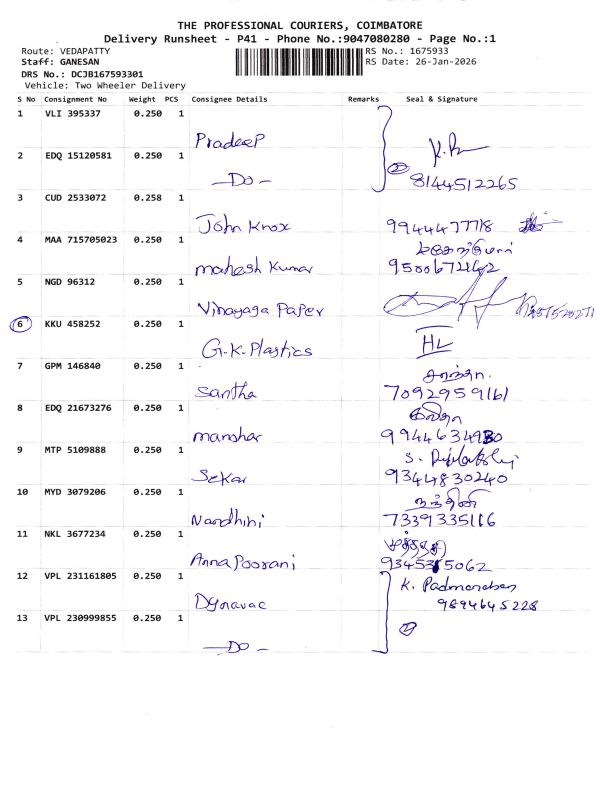 THE PROFESSIONAL COURIERS, COIMBATORE
Delivery Runsheet - P41 - Phone No.:9047080280 - Page No.:1
Route: VEDAPATTY RS No.: 1675933
Staff: GANESAN RS Date: 26-Jan-2026
DRS No.: DCJB167593301
Vehicle: Two Wheeler Delivery
S No Consignment No Weight PCS Consignee Details Remarks Seal & Signature
1 VLI 395337 0.250 1 Pradeep
2 EDQ 15120581 0.250 1 —Do— 2 8144512265
3 CUD 2533072 0.258 1 John Knox 9944477718
4 MAA 715705023 0.250 1 mahesh Kumar
5 NGD 96312 0.250 1 Vinayaga Paper
6 KKU 458252 0.250 1 G.K.Plastics HL
7 GPM 146840 0.250 1 Santha சாந்தா. 7092959161
8 EDQ 21673276 0.250 1 manohar
9 MTP 5109888 0.250 1 Sekar 9344830240
10 MYD 3079206 0.250 1 Nandhini நந்தினி 7339335116
11 NKL 3677234 0.250 1 Anna Poorani
12 VPL 231161805 0.250 1 Dynavac K. Padmanaban 9894645228
13 VPL 230999855 0.250 1 —Do— 2